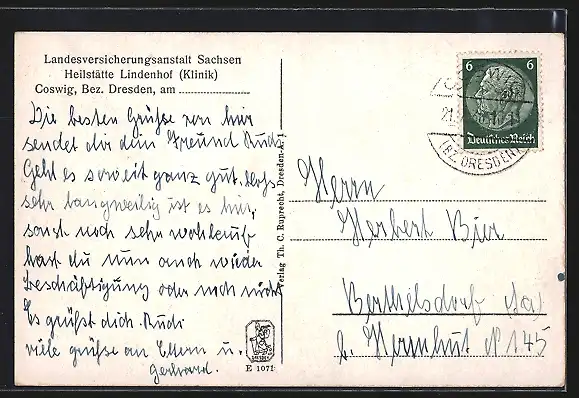 Landesversicherungsanstalt Sachsen
Heilstätte Lindenhof (Klinik)
Coswig, Bez. Dresden, am
Die besten Grüße von hier
sendet dir dein Freund Rudi
Geht es soweit ganz gut, bloß
sehr langweilig ist es hier,
sonst noch sehr wohlauf
hast du nun auch wieder
Beschäftigung oder noch nicht
Es grüßt dich Rudi
viele grüße an Eltern u.
Gerhard.
Verlag Th. C. Ruprecht, Dresden-A. 1
E 1071
6 6
Deutsches Reich
COSWIG
21.
(BZ. DRESDEN)
Herrn
Herbert Bier
Berthelsdorf
b. Herrnhut N 145